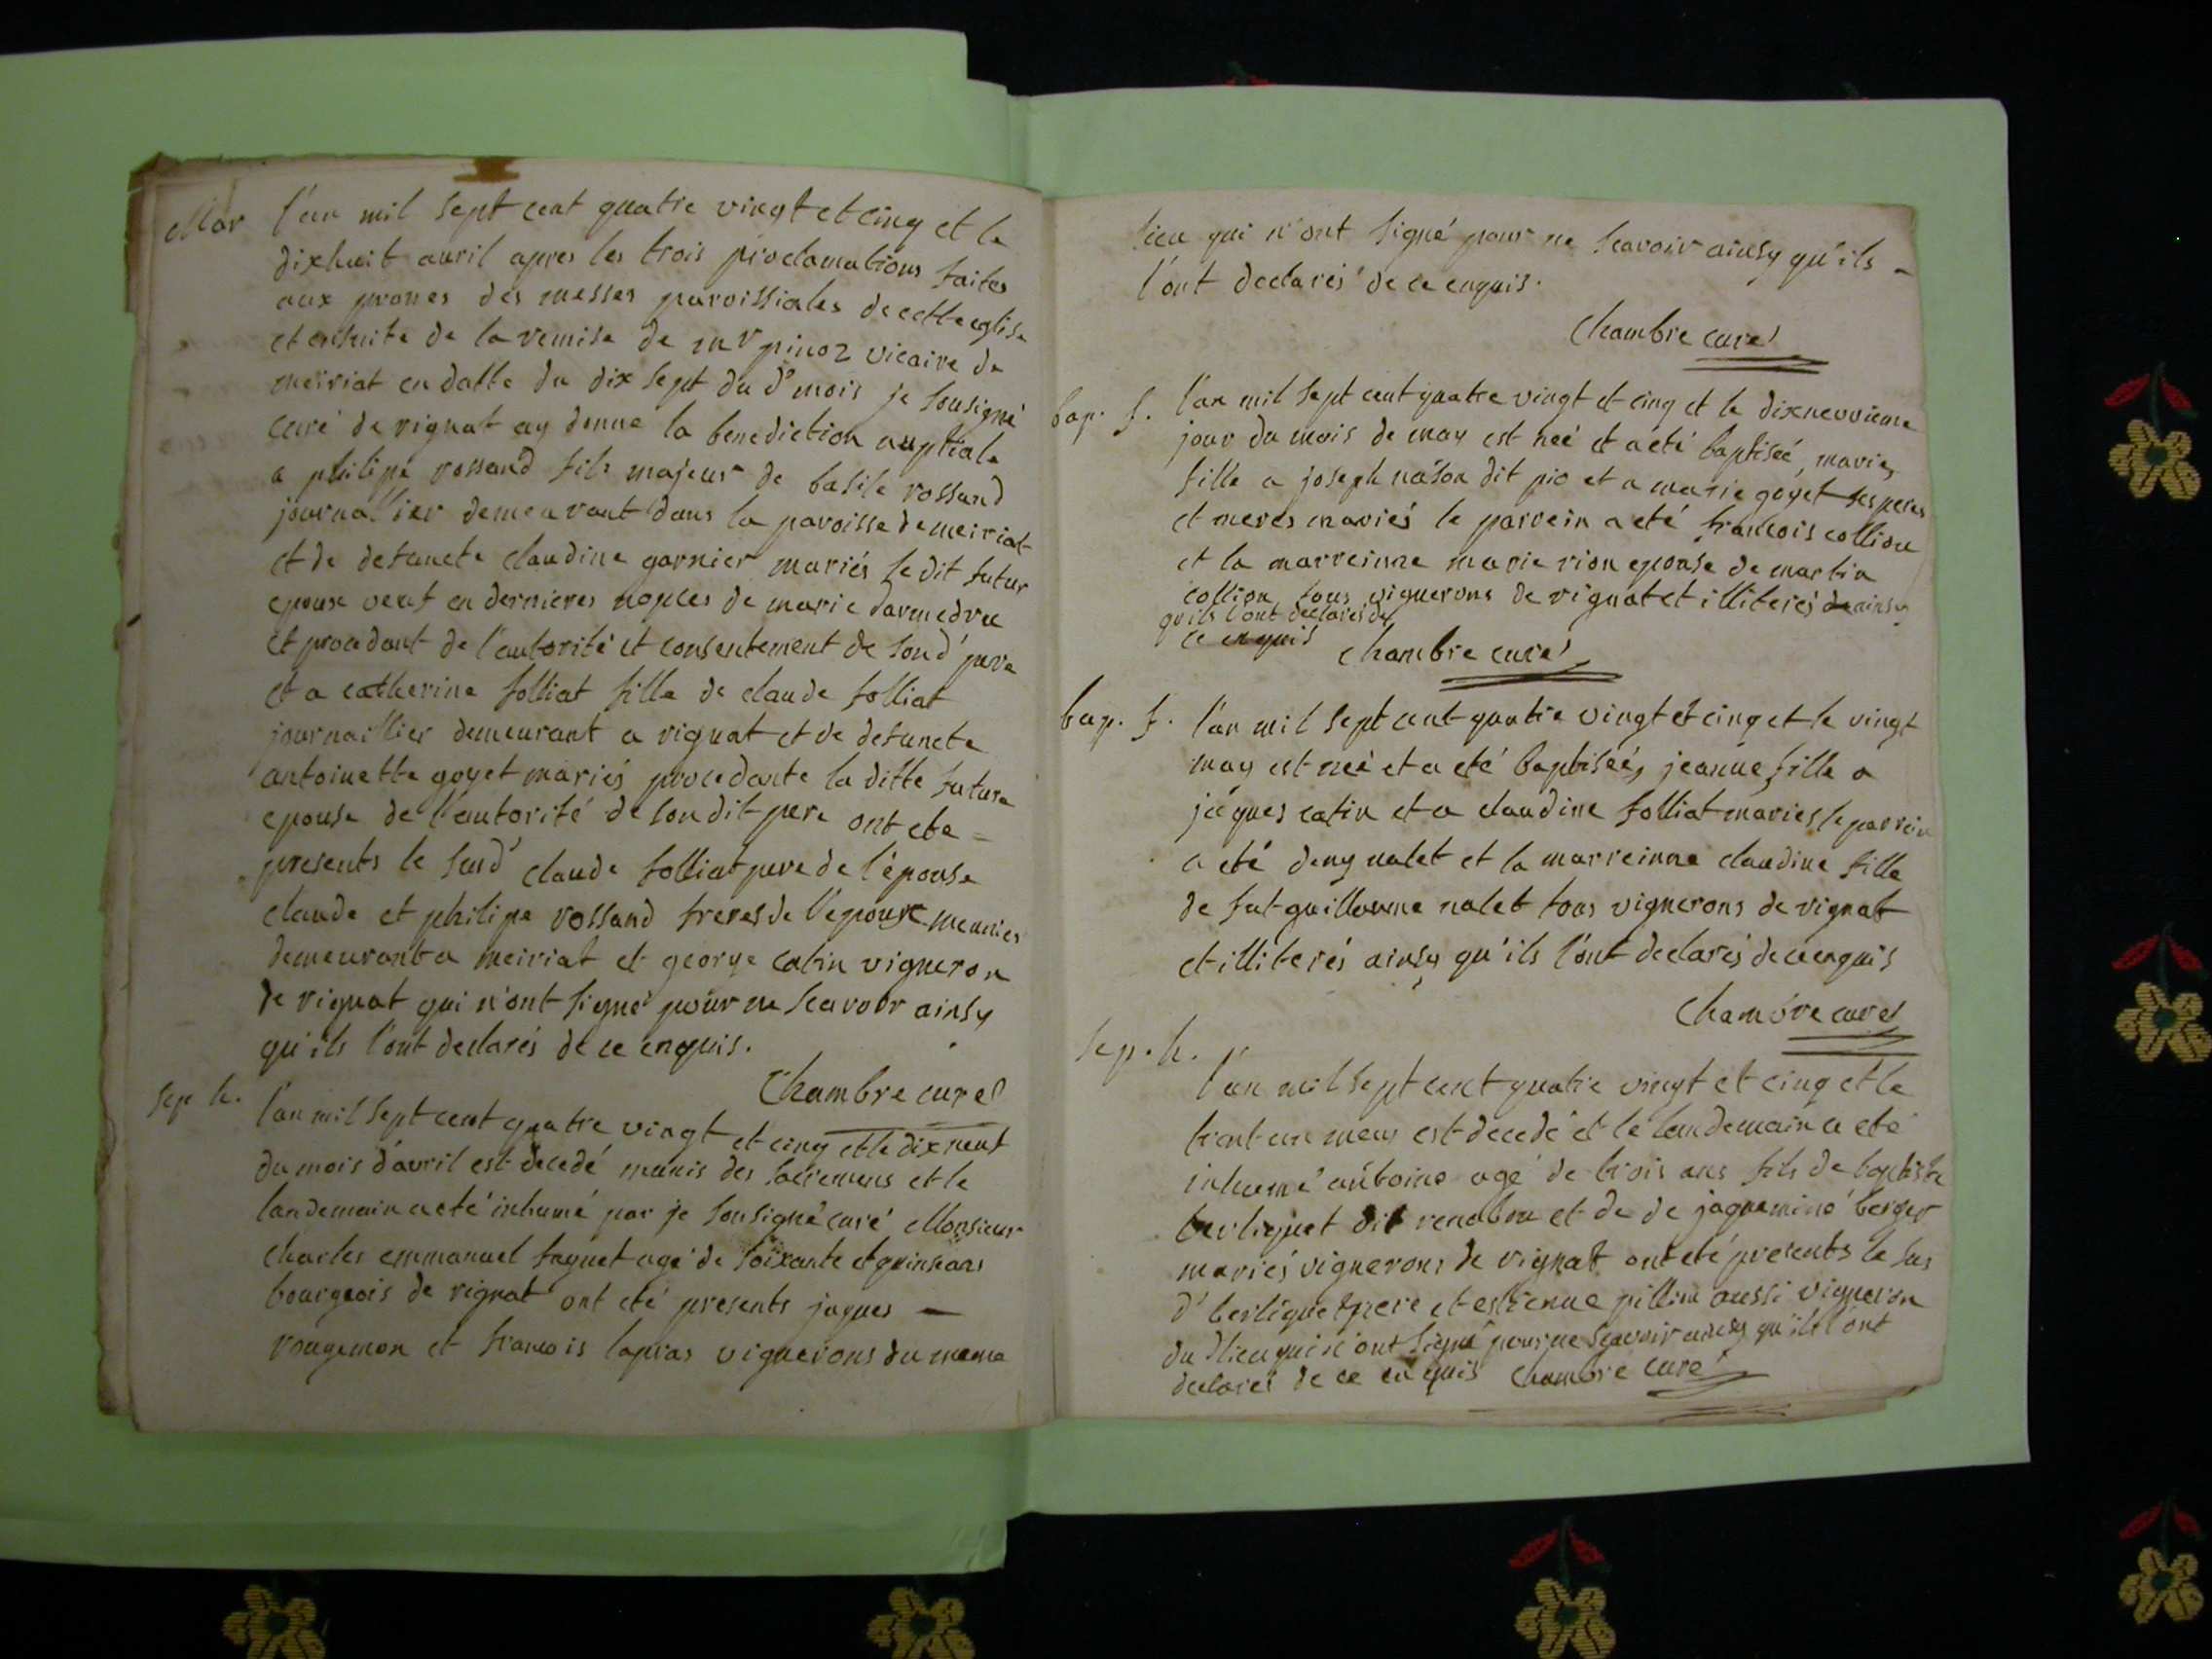 Mar l'an mil sept cent quatre vingt et cinq et le
dixhuit avril apres les trois proclamations faites
aux prones des messes paroissiales de cette eglise
et ensuite de la remise de mr pinoz vicaire de
meiriat en datte du dix sept du d' mois je sousigné
curé de rignat ay donné la benediction nuptiale
a philipe rossand fils majeur de basile rossand
journallier demeurant dans la paroisse de meiriat
et de defuncte claudine garnier mariés le dit futur
epoux veuf en dernieres nopces de marie
et procedant de l'autorité et consentement de son d' pere
et a catherine folliat fille de claude folliat
journallier demeurant a rignat et de defuncte
antoinette goyet mariés procedante la ditte future
epouse de l'autorité de son dit pere ont ete =
presents le susd' claude folliat pere de l'épouse
claude et philipe rossand freres de l'epoux meunier
demeurant a meiriat et george catin vigneron
de rignat qui n'ont signé pour ne scavoir ainsy
qu'ils l'ont declarés de ce enquis.
Chambre curé
sep h. l'an mil sept cent quatre vingt et cinq et le dixneuf
du mois d'avril est decedé munis des sacremens et le
landemain a eté inhumé par je sousigné curé Monsieur
charles emmanuel faguet agé de soixante et quinse ans
bourgeois de rignat ont eté presents jaques —
rougemon et francois lapras vignerons du meme
lieu qui n'ont signé pour ne scavoir ainsy qu'ils -
l'ont declarés de ce enquis.
Chambre curé
bap. f. l'an mil sept cent quatre vingt et cinq et le dixneuvieme
jour du mois de may est neé et a eté baptiseé, marie,
fille a joseph nason dit pio et a marie goyet ses peres
et meres mariés le parrein a eté francois collion
et la marreinne marie rion epouse de martin
collion tous vignerons de rignat et illiterés de ainsy
qu'ils l'ont declarés de
ce enquis Chambre curé
bap. f. l'an mil sept cent quatre vingt et cinq et le vingt
may est neé et a eté baptiseé, jeanne, fille a
jâques catin et a claudine folliat mariés le parrein
a eté deny nalet et la marreinne claudine fille
de fut guillaume nalet tous vignerons de rignat
et illiterés ainsy qu'ils l'ont declarés de ce enquis
Chambre curé
sep. h. l'an mil sept cent quatre vingt et cinq et le
trent un may est decedé et le landemain a eté
inhumé antoine agé de trois ans fils de baptiste
berliquet dit et de de jaquemine berger
mariés vignerons de rignat ont eté presents le sus
d' berliquet pere et estienne pillion aussi vigneron
du d lieu qui n'ont signé pour ne scavoir ainsy qu'ils l'ont
declarés de ce enquis Chambre curé